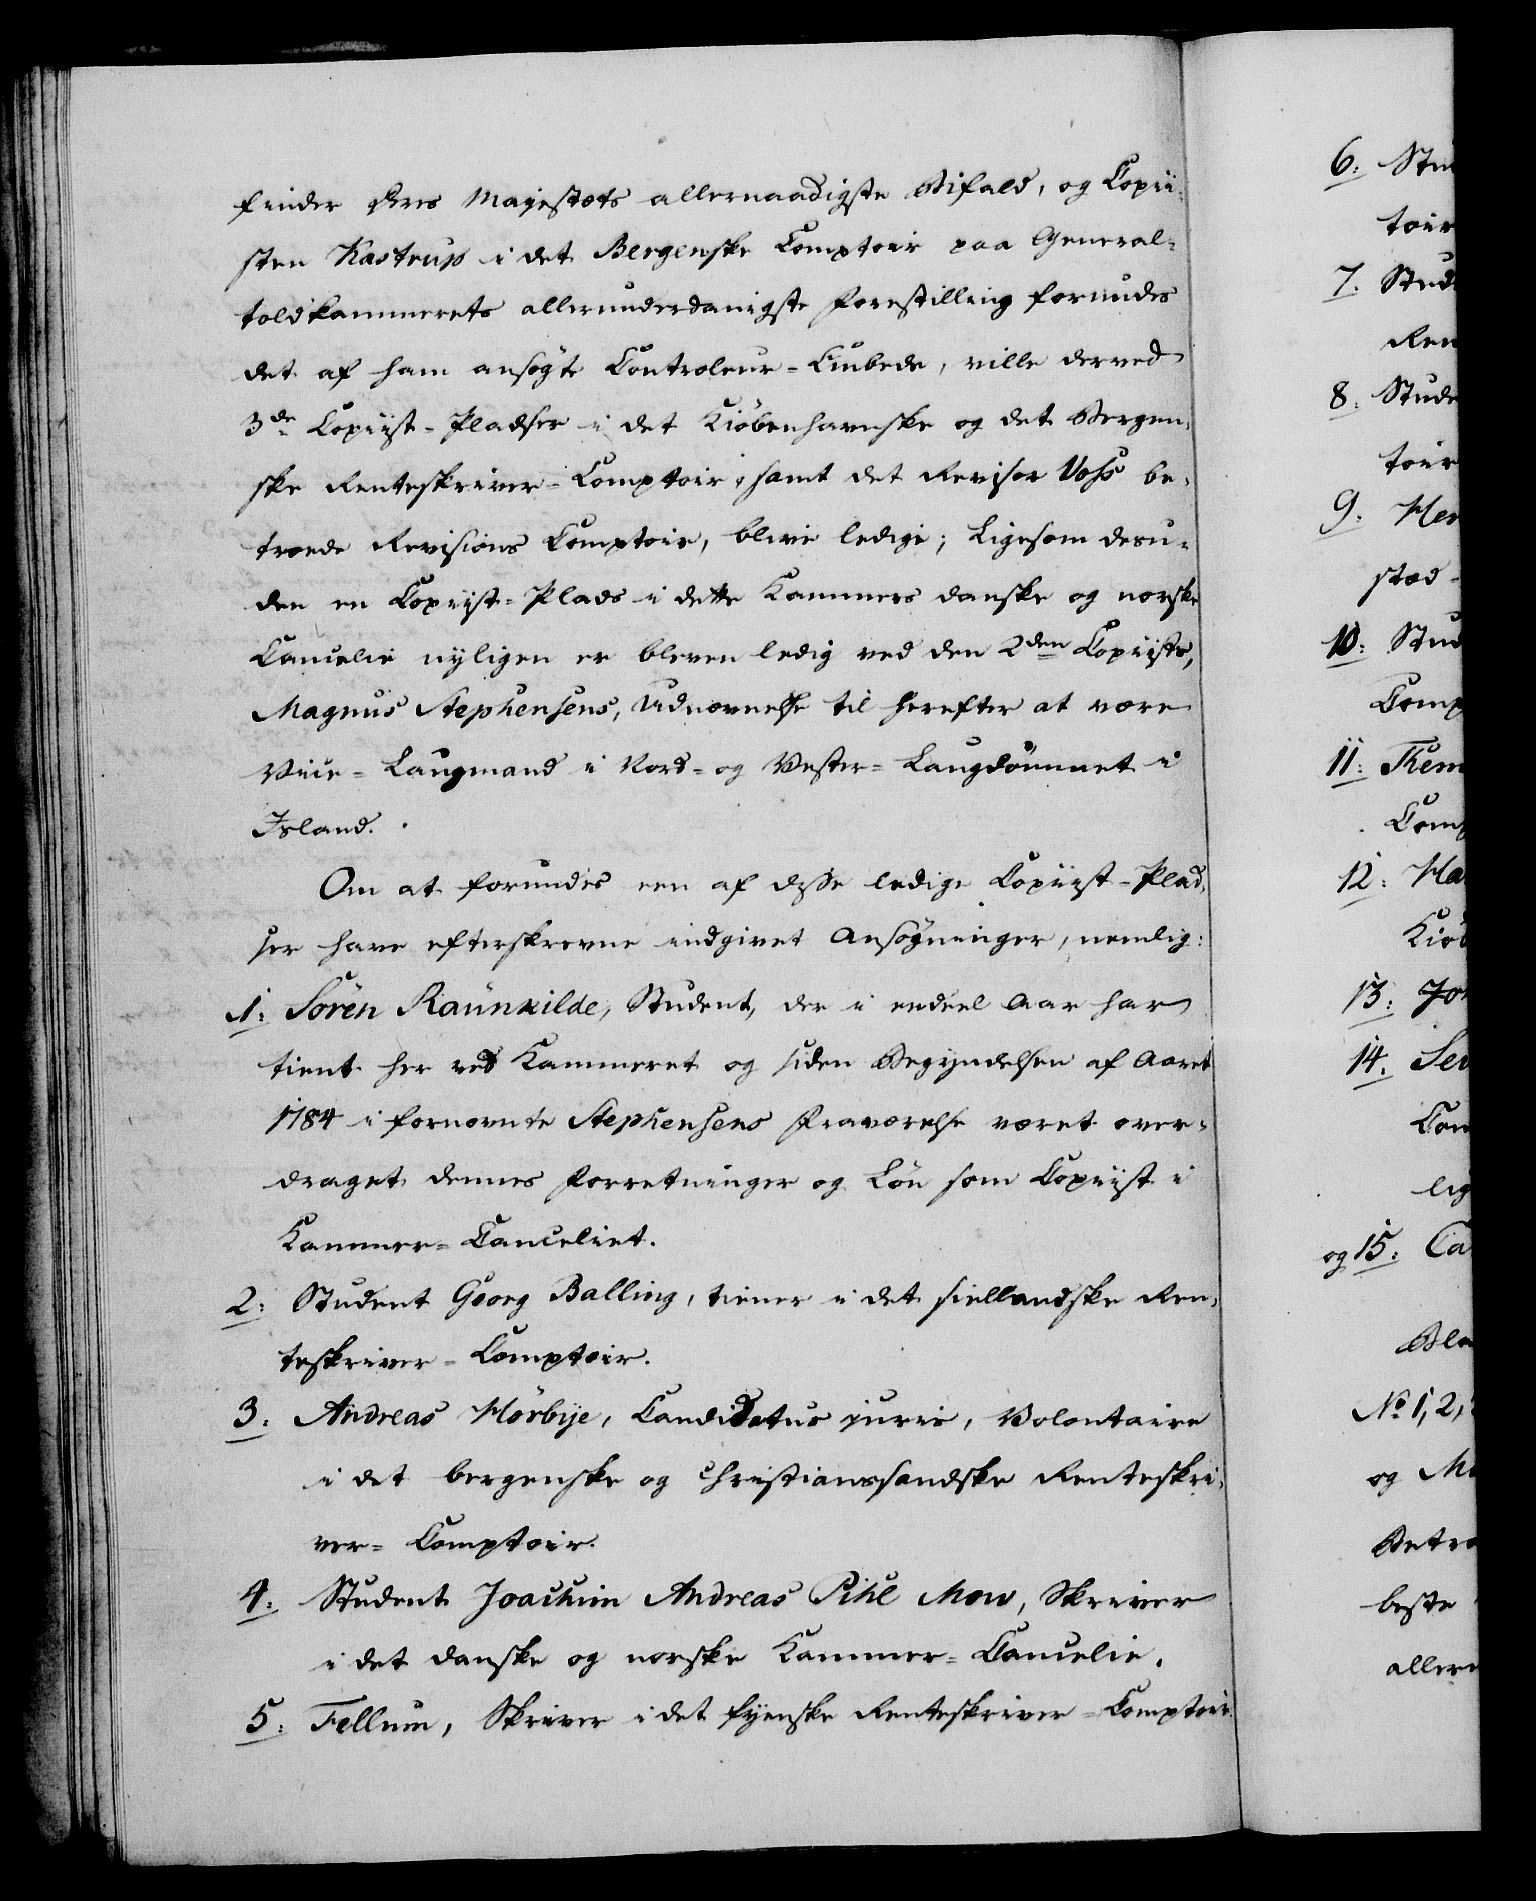 finder Deres Majestæts allernaadigste Bifald, og Copii-
sten Kastrup i det Bergenske Comptoir paa General-
toldkammerets allerunderdanigste Forestilling forundes
det af ham ansøgte Controleur-Embede, ville derved
3de Copiist-Pladser i det Kiöbenhavnske og det Bergen-
ske Renteskriver-Comptoir, samt det Revisor Voss be-
troede Revisions Comptoir, blive ledige; Ligesom desu-
den en Copiist-Plads i dette Kammers danske og norske
Cancelie nyligen er bleven ledig ved den 2den Copiists,
Magnus Stephensens, Udnævnelse til herefter at være
Vice-Laugmand i Nord- og Vester-Laugdömmet i
Island.
Om at forundes een af disse ledige Copiist-Plad-
ser have efterskrevne indgivet Ansøgninger, nemlig:
1: Sören Raunkilde, Student, der i endeel Aar har
tient her ved Kammeret og siden Begyndelsen af Aaret
1784 i fornævnte Stephensens Fraværelse været over-
draget dennes Forretninger og Løn som Copiist i
Kammer-Canceliet.
2: Student Georg Balling, tiener i det siellandske Ren-
teskriver-Comptoir.
3: Andreas Mörbye, Candidatus juris, Volontaire
i det bergenske og christianssandske Renteskri-
ver-Comptoir.
4: Student Joachim Andreas Pihl Mow, Skriver
i det danske og norske Kammer-Cancelie.
5: Fellum, Skriver i det fyenske Renteskriver-Comptoir.
6: Stu
toir
7. Stud
Ren
8: Stude
toir
9:
stad-
10: Stud
Comp
11:
Comp
12: Ma
Kiöb
13: Jo
14.
Com
lig
og 15: Ca
No 1, 2,
og
Betra
beste
aller